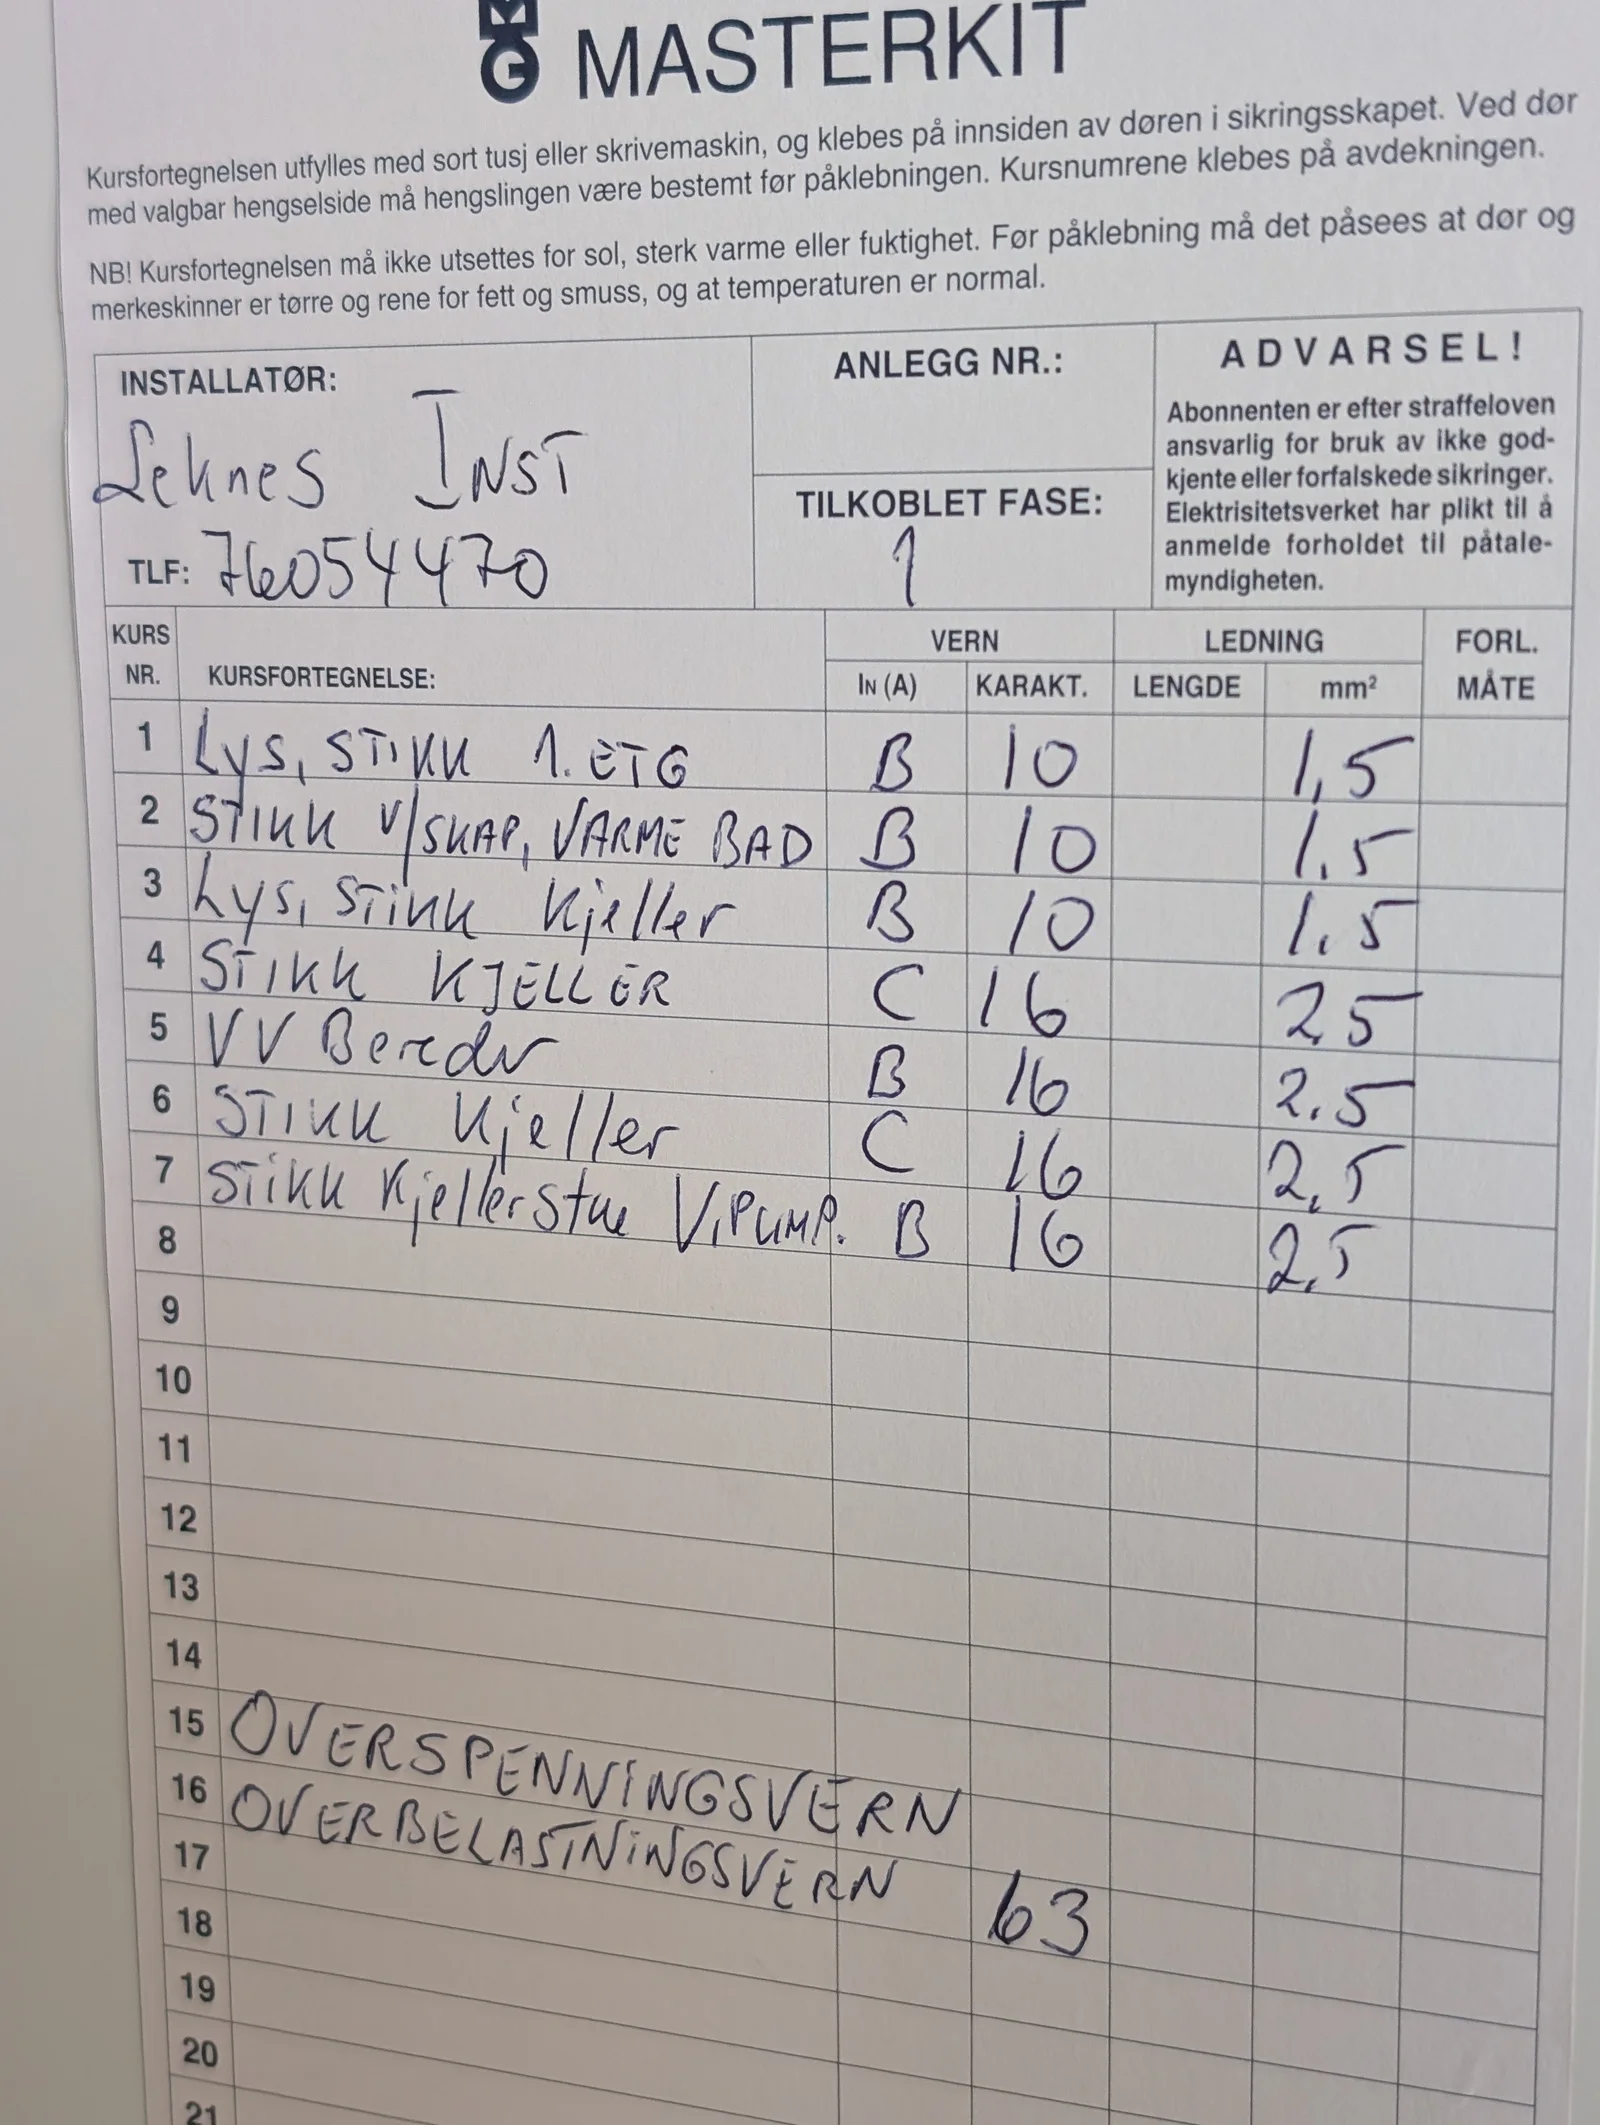 MG MASTERKIT
Kursfortegnelsen utfylles med sort tusj eller skrivemaskin, og klebes på innsiden av døren i sikringsskapet. Ved dør
med valgbar hengselside må hengslingen være bestemt før påklebningen. Kursnumrene klebes på avdekningen.
NB! Kursfortegnelsen må ikke utsettes for sol, sterk varme eller fuktighet. Før påklebning må det påsees at dør og
merkeskinner er tørre og rene for fett og smuss, og at temperaturen er normal.
INSTALLATØR:
Leknes INST
TLF: 76054470
ANLEGG NR.:
TILKOBLET FASE:
1
ADVARSEL!
Abonnenten er efter straffeloven
ansvarlig for bruk av ikke god-
kjente eller forfalskede sikringer.
Elektrisitetsverket har plikt til å
anmelde forholdet til påtale-
myndigheten.
KURS NR. KURSFORTEGNELSE: VERN LEDNING FORL. MÅTE
IN (A) KARAKT. LENGDE mm²
1 Lys, STIKK 1. ETG B 10 1,5
2 STIKK V/SKAP, VARME BAD B 10 1.5
3 Lys, STIKK Kjeller B 10 1.5
4 STIKK KJELLER C 16 2,5
5 VV Bereder B 16 2.5
6 STIKK Kjeller C 16 2,5
7 STIKK Kjellerstue V.PUMP. B 16 2,5
8
9
10
11
12
13
14
15 OVERSPENNINGSVERN
16 OVERBELASTNINGSVERN 63
17
18
19
20
21